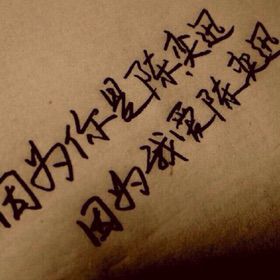 因为你是陈奕迅
因为我爱陈奕迅